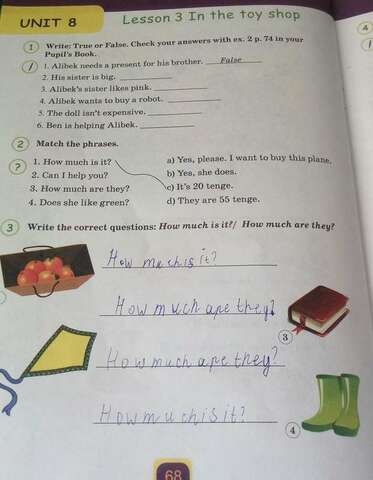 UNIT 8
Lesson 3 In the toy shop
1 Write: True or False. Check your answers with ex. 2 p. 74 in your
Pupil's Book.
1. Alibek needs a present for his brother. False
2. His sister is big.
3. Alibek's sister likes pink.
4. Alibek wants to buy a robot.
5. The doll isn't expensive.
6. Ben is helping Alibek.
2 Match the phrases.
1. How much is it? a) Yes, please. I want to buy this plane.
2. Can I help you? b) Yes, she does.
3. How much are they? c) It's 20 tenge.
4. Does she like green? d) They are 55 tenge.
3 Write the correct questions: How much is it?/ How much are they?
How much is it?
How much are they?
3
How much are they?
How much is it?
4
68